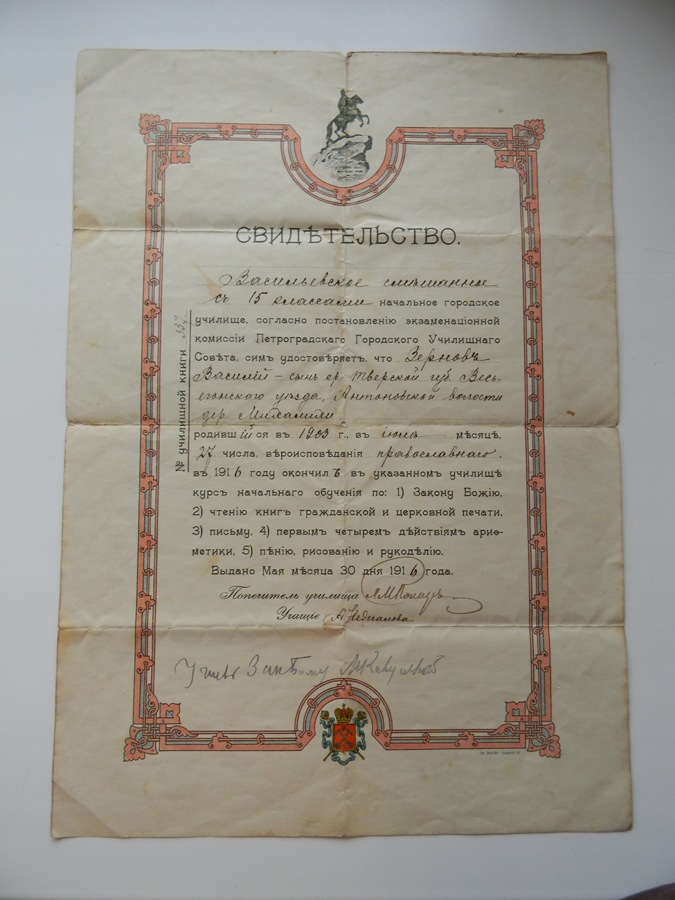 СВИДѢТЕЛЬСТВО.
Васильевское смѣшанное
съ 15 классами начальное городское
училище, согласно постановленію экзаменаціонной
комиссіи Петроградскаго Городского Училищнаго
Совѣта, симъ удостовѣряетъ, что Зерновъ
Василій – сынъ кр. Тверской губ. Весь-
егонскаго уѣзда, Антоновской волости
дер.
родившійся въ 1903 г., въ іюлѣ мѣсяцѣ,
27 числа, вѣроисповѣданія православнаго,
въ 1916 году окончилъ въ указанномъ училищѣ
курсъ начальнаго обученія по: 1) Закону Божію,
2) чтенію книгъ гражданской и церковной печати,
3) письму, 4) первымъ четыремъ дѣйствіямъ ариѳ-
метики, 5) пѣнію, рисованію и рукодѣлію.
Выдано Мая мѣсяца 30 дня 1916 года.
Попечитель училища
Учащіе
№ училищной книги 137